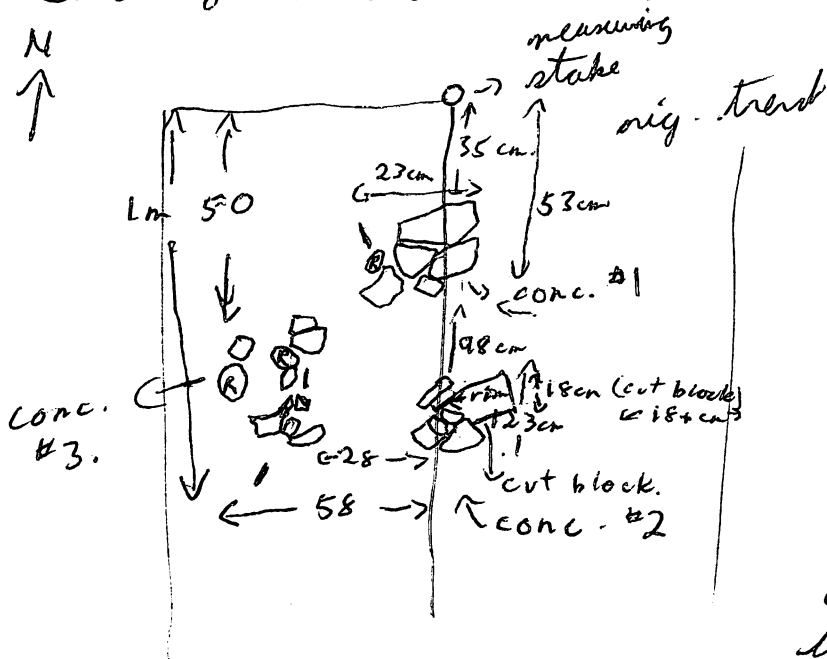 N
measuring
stake
orig. trench
35 cm.
23cm
1m
50
53cm
R
conc. #1
98cm
R
R
rim
18cm (cut block)
18+cm
23cm
conc.
#3.
28
cut block.
58
conc. #2